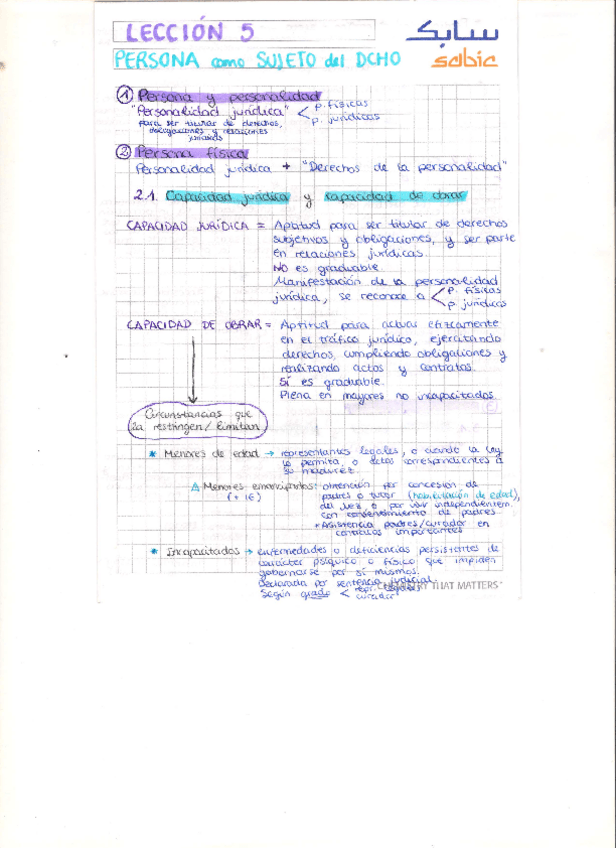 LECCIÓN 5
سابك
sabic
PERSONA como SUJETO del DCHO
① Persona y personalidad
"Personalidad jurídica" < p. físicas
p. jurídicas
para ser titular de derechos,
obligaciones y relaciones
jurídicas
② Persona física
Personalidad jurídica + "Derechos de la personalidad"
2.1. Capacidad jurídica y capacidad de obrar
CAPACIDAD JURÍDICA = Aptitud para ser titular de derechos
subjetivos y obligaciones, y ser parte
en relaciones jurídicas.
NO es graduable.
Manifestación de la personalidad
jurídica, se reconoce a < p. físicas
p. jurídicas
CAPACIDAD DE OBRAR = Aptitud para actuar eficazmente
en el tráfico jurídico, ejercitando
derechos, cumpliendo obligaciones y
realizando actos y contratos.
SÍ es graduable.
Plena en mayores no incapacitados
Circunstancias que
la restringen / limitan
* Menores de edad → representantes legales, o cuando la ley
lo permita, o actos correspondientes a
su madurez.
△ Menores emancipados: obtención por concesión de
(+16) padres o tutor (habilitación de edad),
del juez o por vivir independientem.
con consentimiento de padres
+ Asistencia padres/curador en
contratos importantes
* Incapacitados → enfermedades o deficiencias persistentes de
carácter psíquico o físico que impiden
gobernarse por sí mismos.
Declarada por sentencia judicial.
Según grado < repr. legales
curador
THAT MATTERS